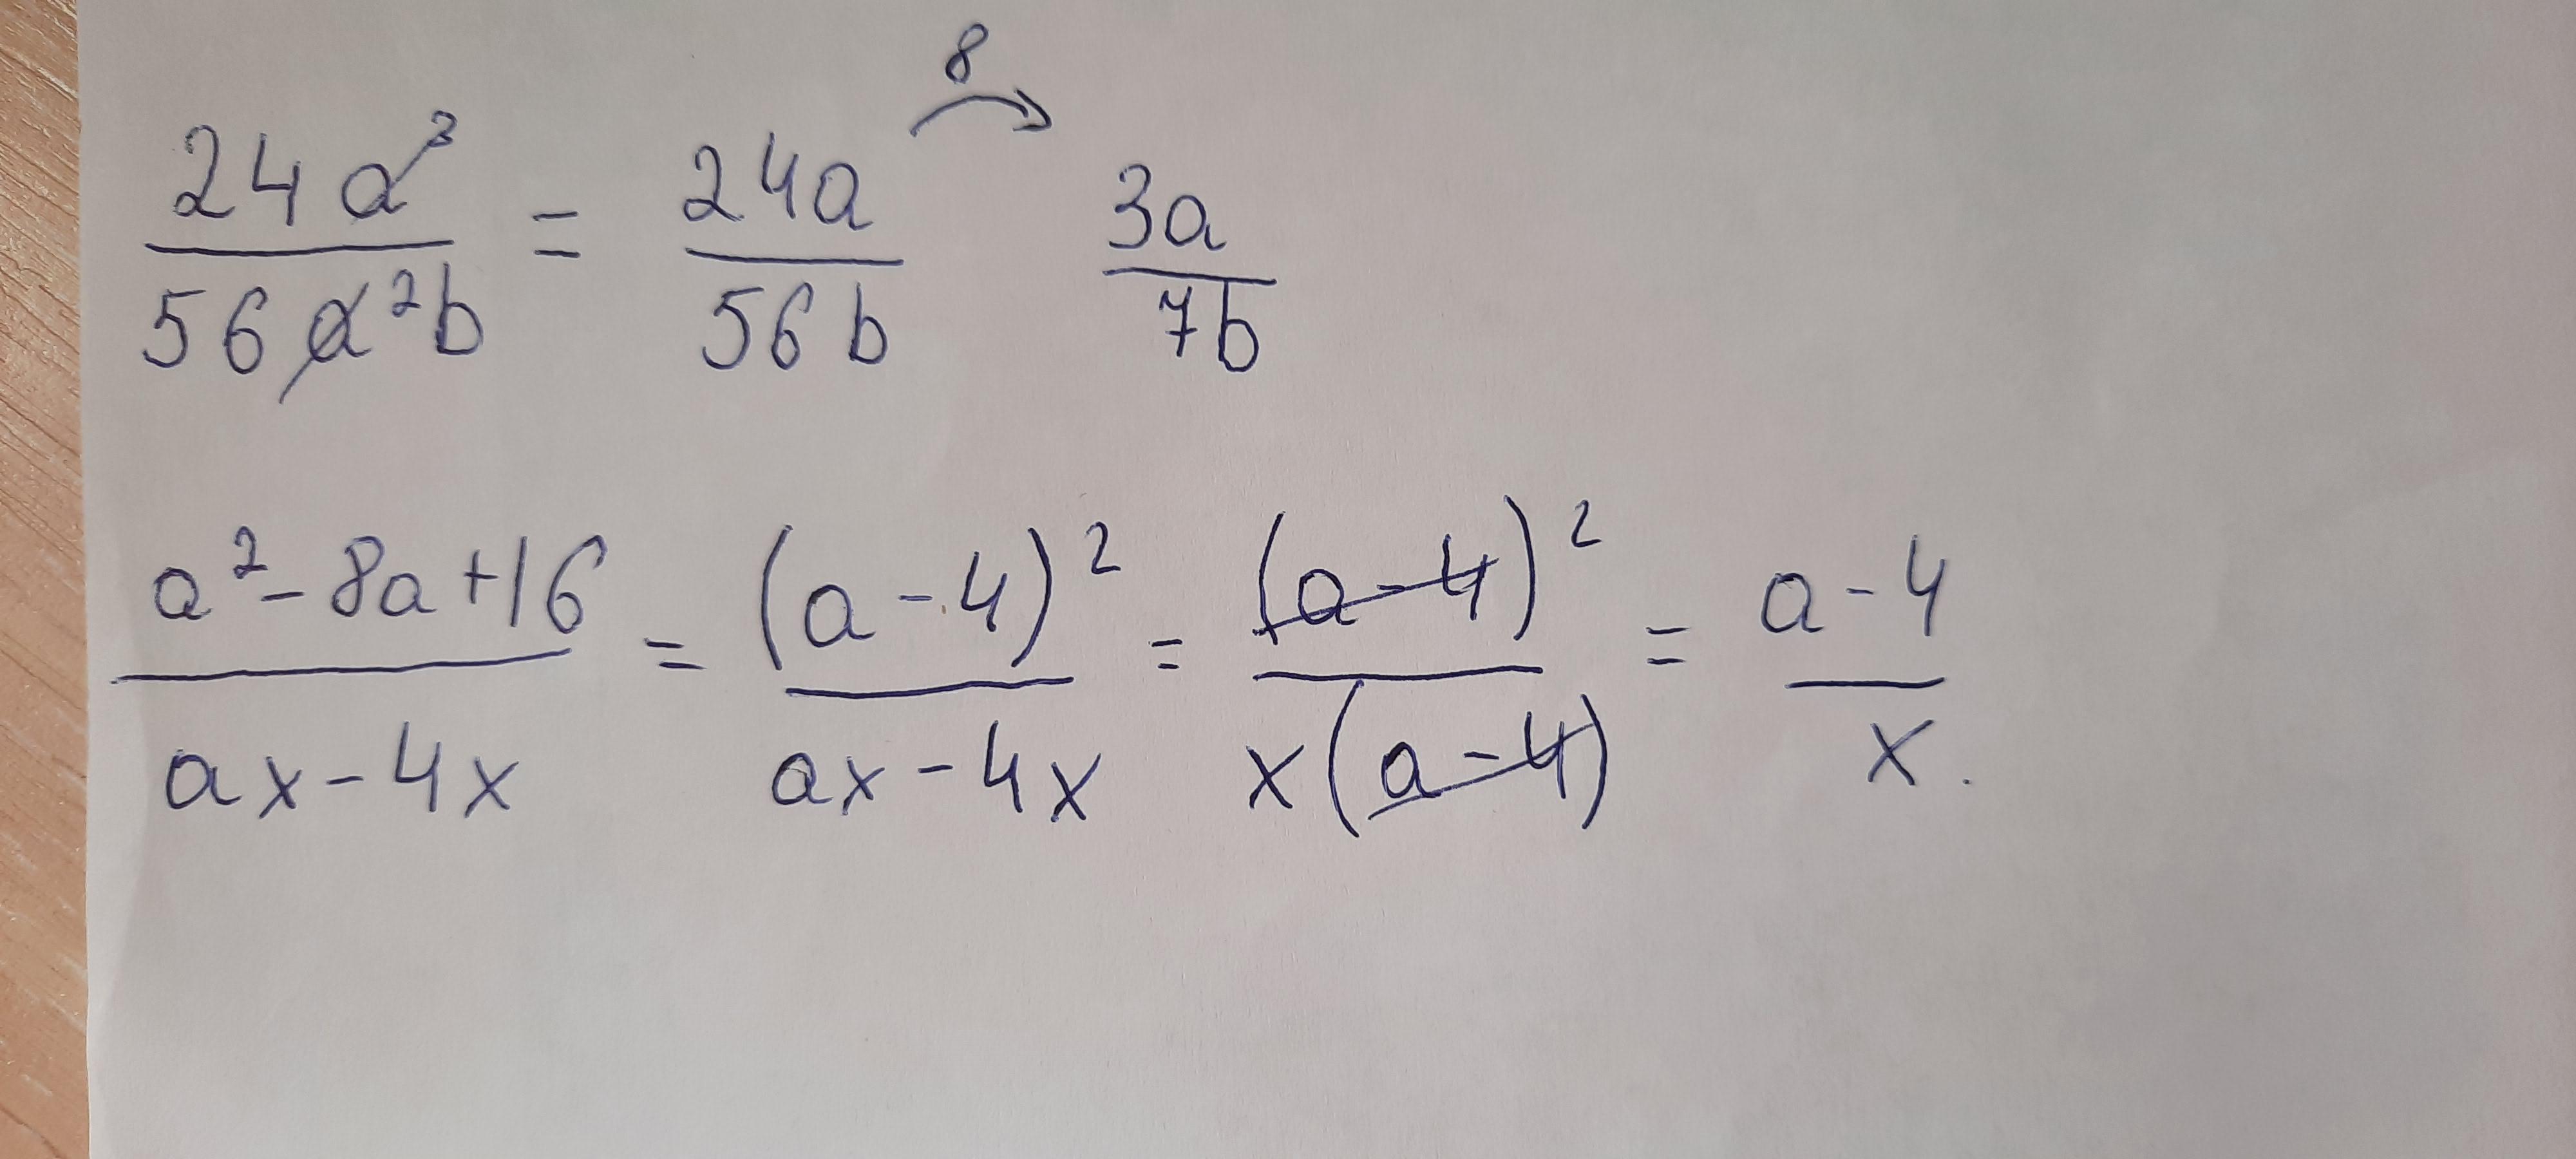 24a³/56a²b = 24a/56b ⟶8 3a/7b
a²-8a+16/ax-4x = (a-4)²/ax-4x = (a-4)²/x(a-4) = a-4/x.